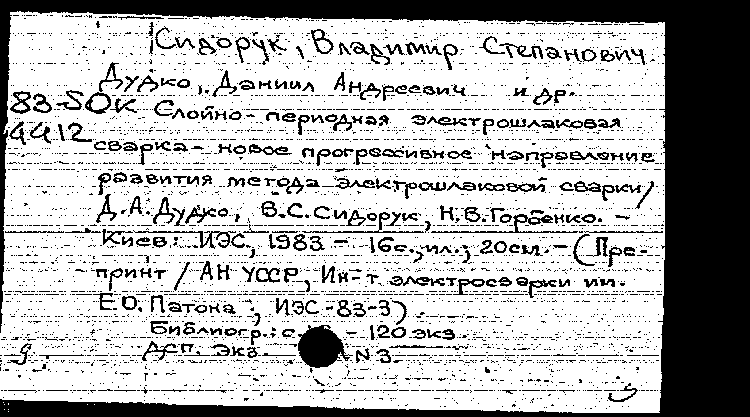 Сидорук, Владимир Степанович
Дудко, Даниил Андреевич и др.
83-SOK Слойно-периодная электрошлаковая
4412 сварка - новое прогрессивное направление
развития метода электрошлаковой сварки/
Д.А.Дудко, В.С.Сидорук, Н.В.Горбенко. -
Киев: ИЭС, 1983 - 16с., ил.; 20см. - (Пре-
принт / АН УССР, Ин-т электросварки им.
Е.О. Патона; ИЭС-83-3).
Библиогр.: с. - 120 экз.
экз. N 3.